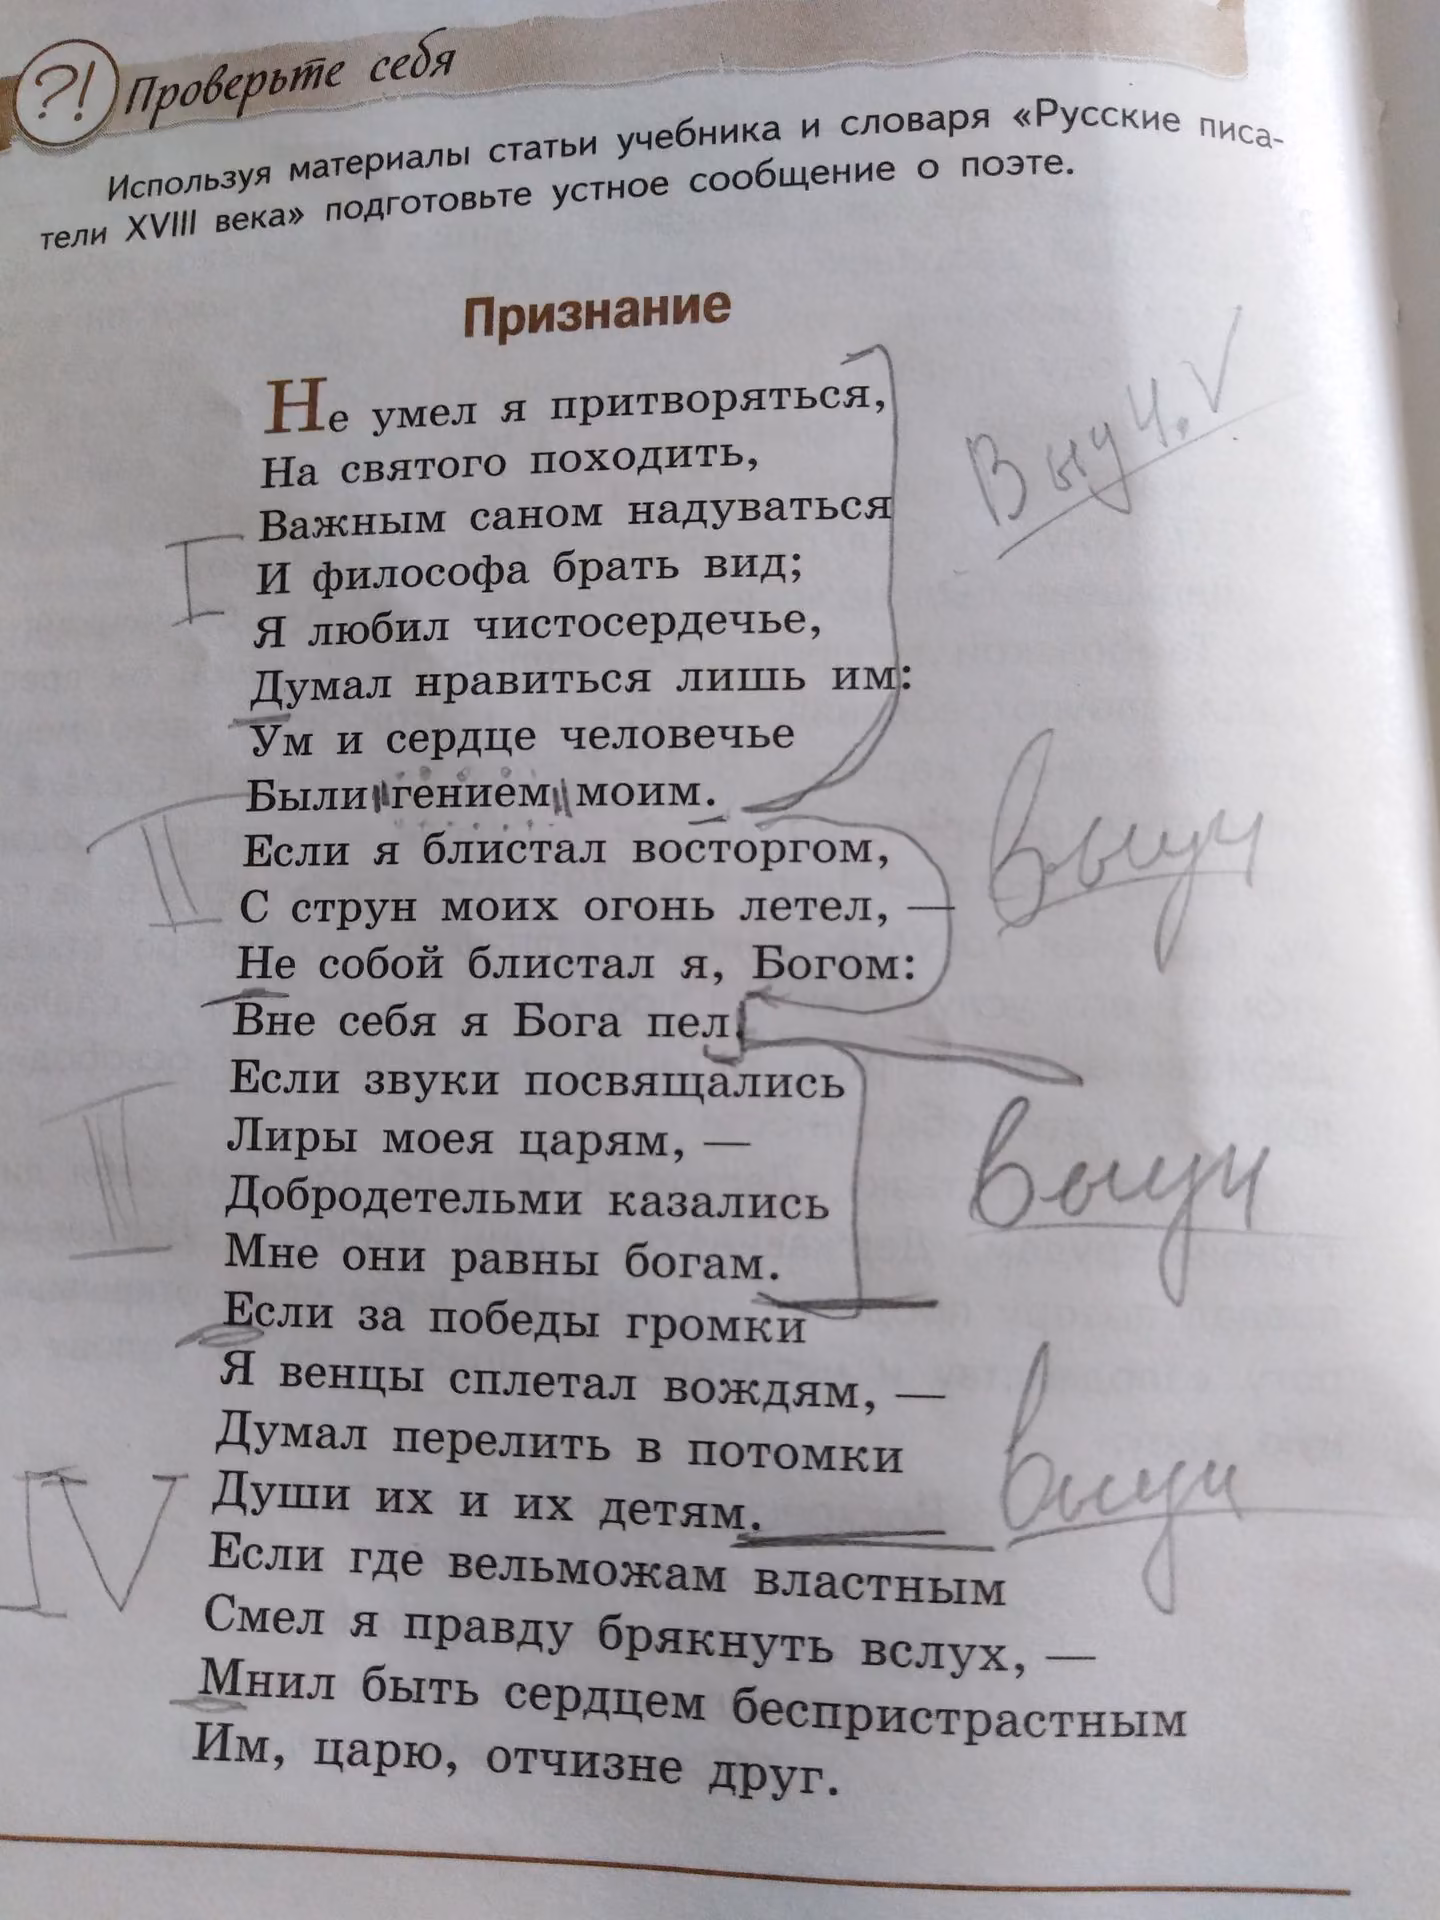 ?! Проверьте себя
Используя материалы статьи учебника и словаря «Русские писа-
тели XVIII века» подготовьте устное сообщение о поэте.
Признание
Не умел я притворяться,
На святого походить,
Выуч. √
Важным саном надуваться
I
И философа брать вид;
Я любил чистосердечье,
Думал нравиться лишь им:
Ум и сердце человечье
Были гением моим.
II
Если я блистал восторгом,
выуч
С струн моих огонь летел, —
Не собой блистал я, Богом:
Вне себя я Бога пел.
Если звуки посвящались
III
Лиры моея царям, —
выуч
Добродетельми казались
Мне они равны богам.
Если за победы громки
Я венцы сплетал вождям, —
Думал перелить в потомки
выуч
IV
Души их и их детям.
Если где вельможам властным
Смел я правду брякнуть вслух, —
Мнил быть сердцем беспристрастным
Им, царю, отчизне друг.